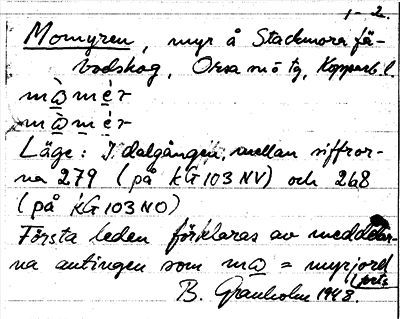 1-2.
Momyren, myr å Stackmora fä-
bodskog, Orsa sn ö tg, Kopparb. l.
mὼmèr
mὼmèr
Läge: I dalgången mellan siffror-
na 279 (på KG 103 NV) och 268
(på KG 103 NO)
Första leden förklaras av meddelar-
na antingen som mω = myrjord
(forts
B. Granholm 1948.